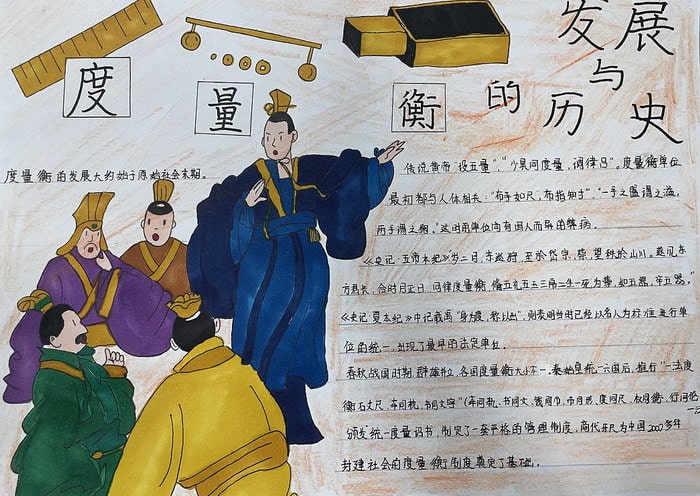 度 量 衡 的
发展
与
历史
度量衡的发展大约始于原始社会末期。
传说黄帝"设五量"，"少昊同度量，调律吕"。度量衡单位
最初都与人体相关："布手知尺，布指知寸"、"一手之盛谓之溢，
两手谓之掬"，这时的单位尚有因人而异的弊病。
《史记·五帝本纪》岁二月，东巡狩，至於岱宗，柴，望秩於山川。遂见东
方君长，合时月正日，同律度量衡，脩五礼五玉三帛二生一死为挚，如五器，卒乃
《史记 夏本纪》中记载禹"身为度，称以出"，则表明当时已经以名人为标准进行单
位的统一，出现了最早的法定单位。
春秋战国时期，群雄并立，各国度量衡大小不一。秦始皇统一六国后，推行"一法度
衡石丈尺，车同轨，书同文字"
颁发统一度量诏书，制定了一套严格的管理制度，商代 尺为中国2000多年
封建社会的度量衡制度奠定了基础。